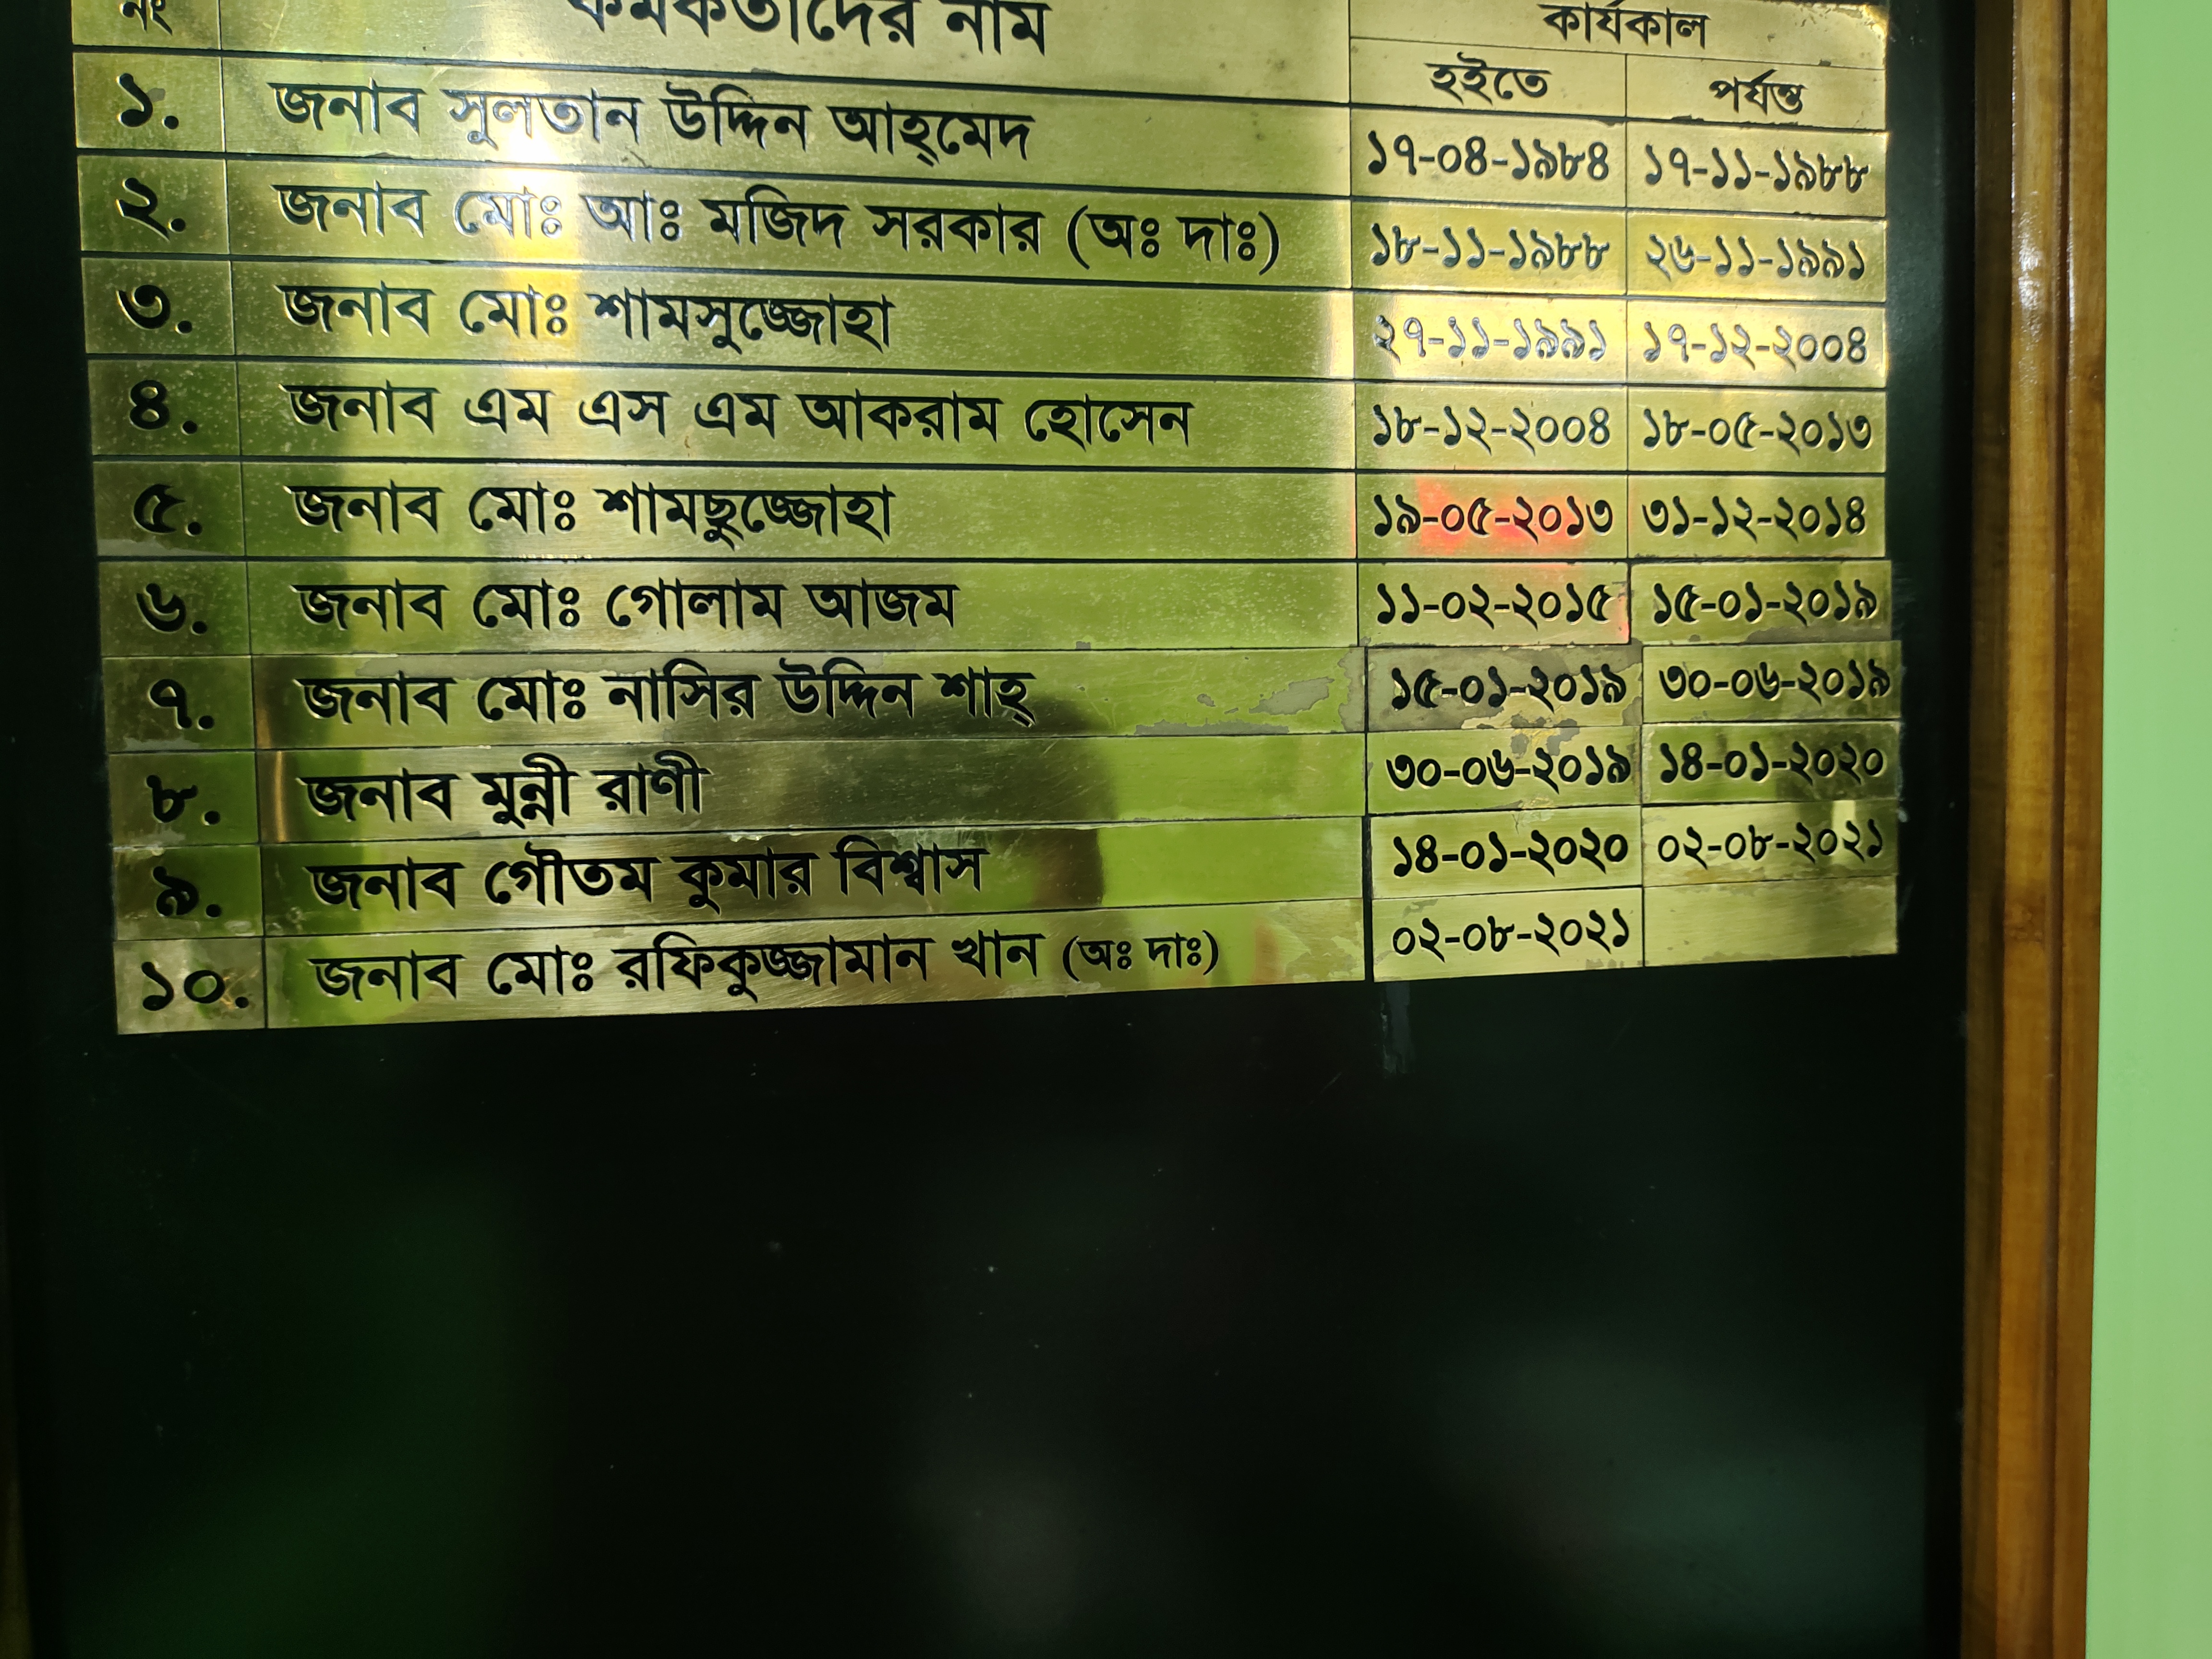 নং কর্মকর্তাদের নাম কার্যকাল
হইতে পর্যন্ত
১. জনাব সুলতান উদ্দিন আহ্মেদ ১৭-০৪-১৯৮৪ ১৭-১১-১৯৮৮
২. জনাব মোঃ আঃ মজিদ সরকার (অঃ দাঃ) ১৮-১১-১৯৮৮ ২৬-১১-১৯৯১
৩. জনাব মোঃ শামসুজ্জোহা ২৭-১১-১৯৯১ ১৭-১২-২০০৪
৪. জনাব এম এস এম আকরাম হোসেন ১৮-১২-২০০৪ ১৮-০৫-২০১৩
৫. জনাব মোঃ শামছুজ্জোহা ১৯-০৫-২০১৩ ৩১-১২-২০১৪
৬. জনাব মোঃ গোলাম আজম ১১-০২-২০১৫ ১৫-০১-২০১৯
৭. জনাব মোঃ নাসির উদ্দিন শাহ্ ১৫-০১-২০১৯ ৩০-০৬-২০১৯
৮. জনাব মুন্নী রাণী ৩০-০৬-২০১৯ ১৪-০১-২০২০
৯. জনাব গৌতম কুমার বিশ্বাস ১৪-০১-২০২০ ০২-০৮-২০২১
১০. জনাব মোঃ রফিকুজ্জামান খান (অঃ দাঃ) ০২-০৮-২০২১